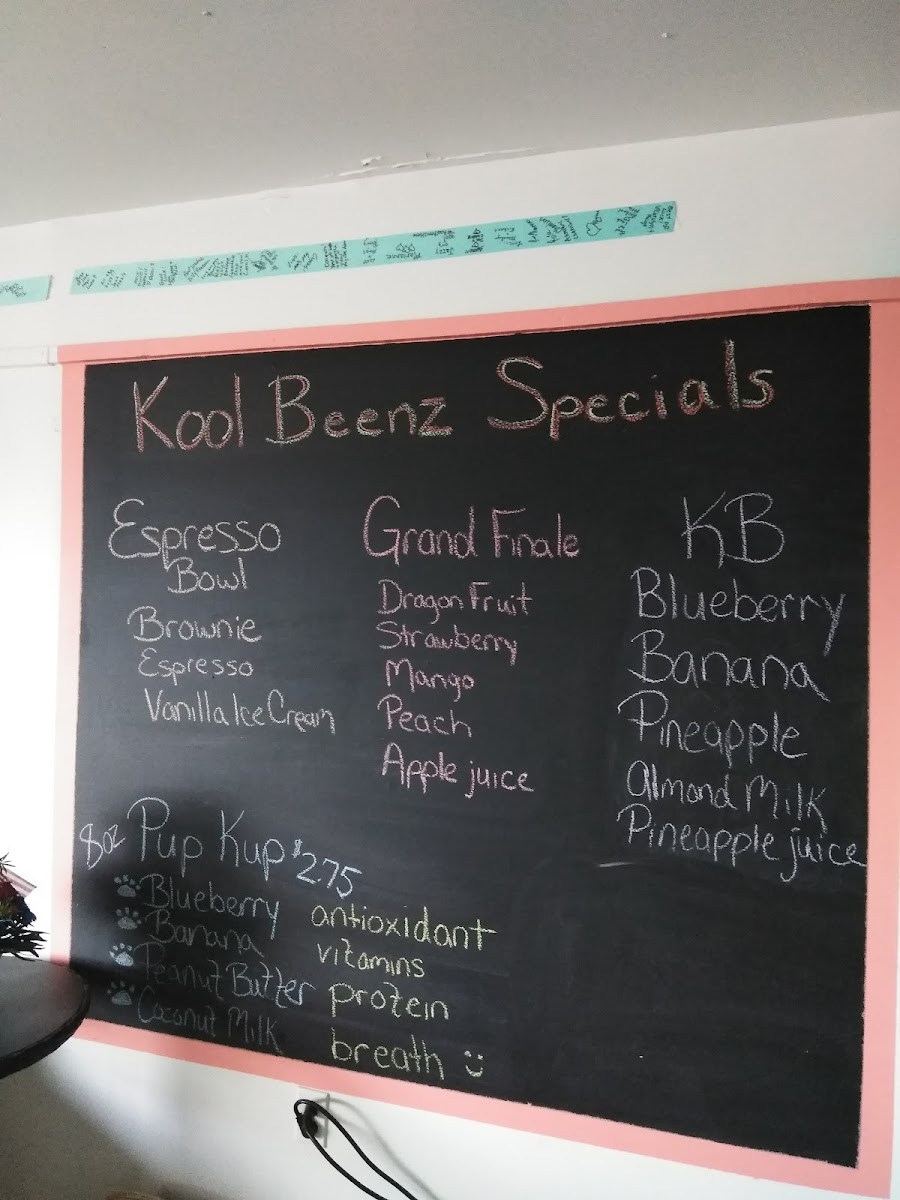 Kool Beenz Specials
Espresso
Bowl
Brownie
Espresso
Vanilla Ice Cream
Grand Finale
Dragon Fruit
Strawberry
Mango
Peach
Apple juice
KB
Blueberry
Banana
Pineapple
Almond Milk
Pineapple juice
8oz Pup Kup $2.75
Blueberry antioxidant
Banana vitamins
Peanut Butter protein
Coconut Milk breath